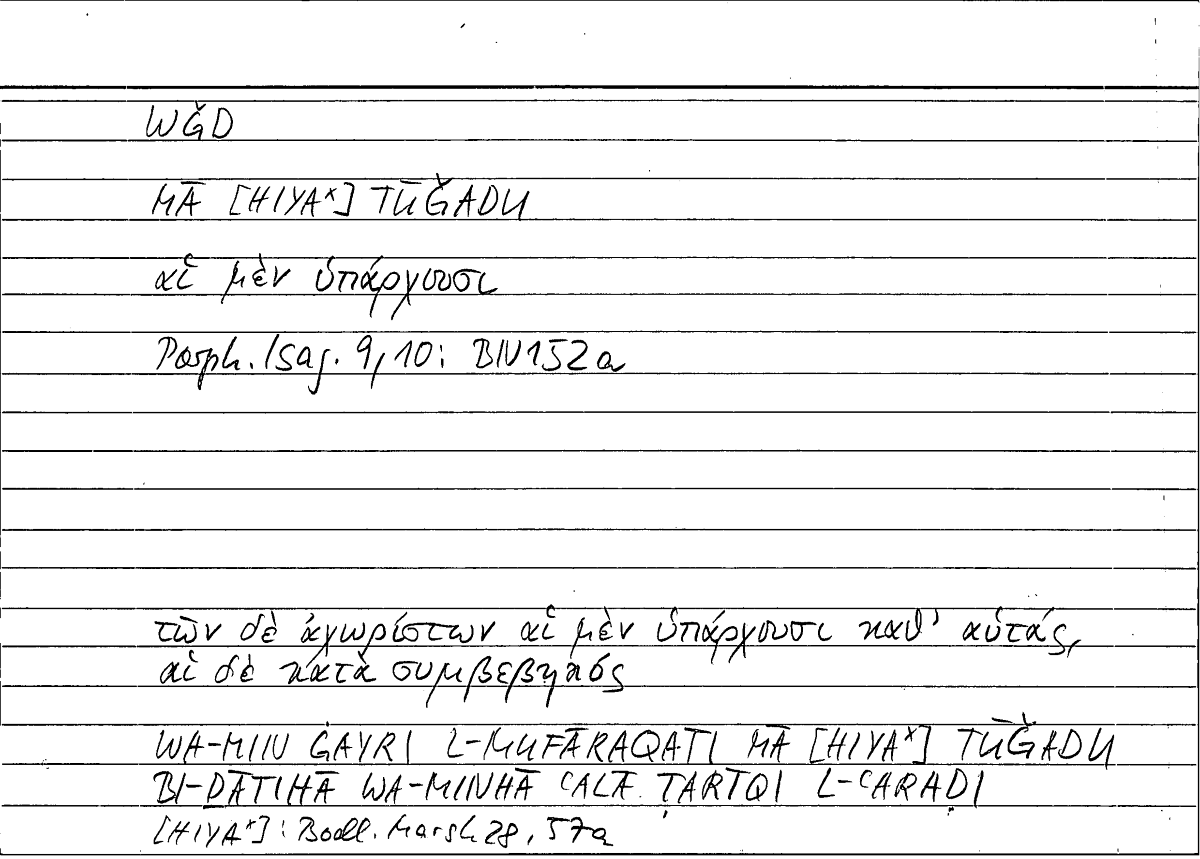 WǦD
MĀ [HIYA*] TŪǦADU
αἳ μὲν ὑπάρχουσι
Porph. Isag. 9,10: BN 152a
τῶν δὲ ἀχωρίστων αἳ μὲν ὑπάρχουσι καθ' αὑτάς,
αἳ δὲ κατὰ συμβεβηκός
WA-MIN ĠAYRI L-MUFĀRAQATI MĀ [HIYA*] TŪǦADU
BI-ḎĀTIHĀ WA-MINHĀ ʿALĀ ṬARĪQI L-ʿARAḌI
[HIYA*]: Bodl. Marsh 28, 57a